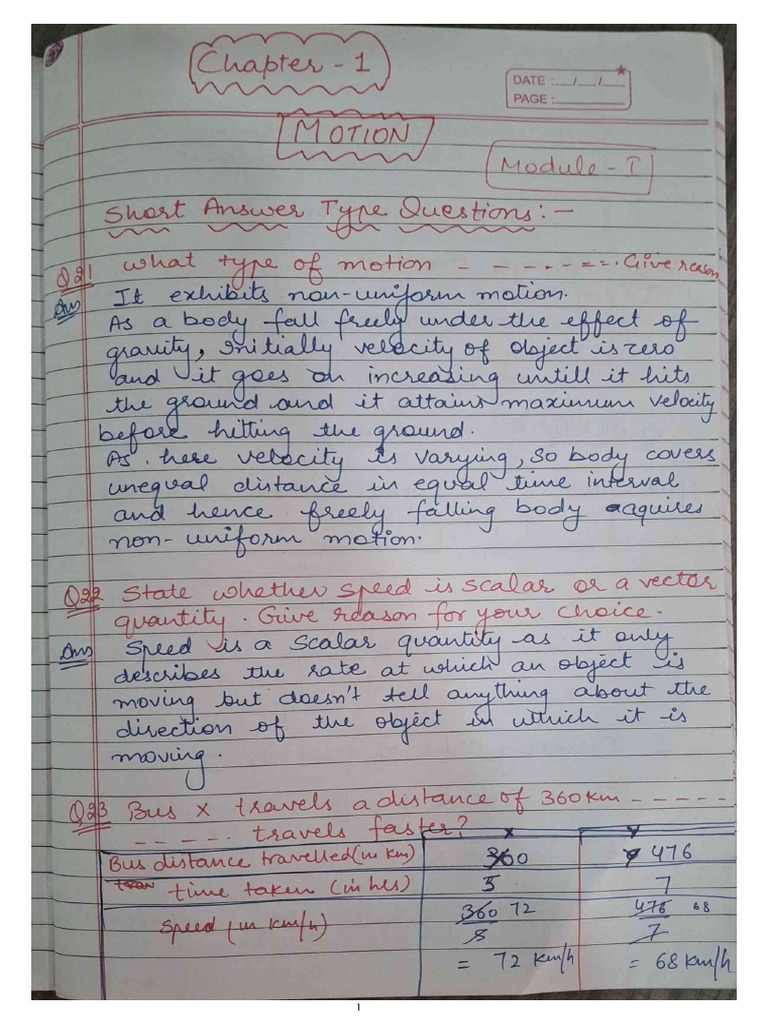 Chapter - 1
DATE : __/__/__
PAGE : ______
MOTION
Module - I
Short Answer Type Questions : -
Q21 what type of motion - - - - - - = = . Give reason
Ans It exhibits non-uniform motion.
As a body fall freely under the effect of
gravity, initially velocity of object is zero
and it goes on increasing untill it hits
the ground and it attains maximum velocity
before hitting the ground.
As here velocity is varying, so body covers
unequal distance in equal time interval
and hence freely falling body acquires
non-uniform motion.
Q22 State whether speed is scalar or a vector
quantity. Give reason for your choice.
Ans Speed is a scalar quantity as it only
describes the rate at which an object is
moving but doesn't tell anything about the
direction of the object in which it is
moving.
Q23 Bus X travels a distance of 360 km - - - - -
- - - - - . travels faster?
X Y
Bus distance travelled (in km) 360 476
time taken (in hrs) 5 7
Speed (in km/h) 360 72 476 68
5 7
= 72 km/h = 68 km/h
1